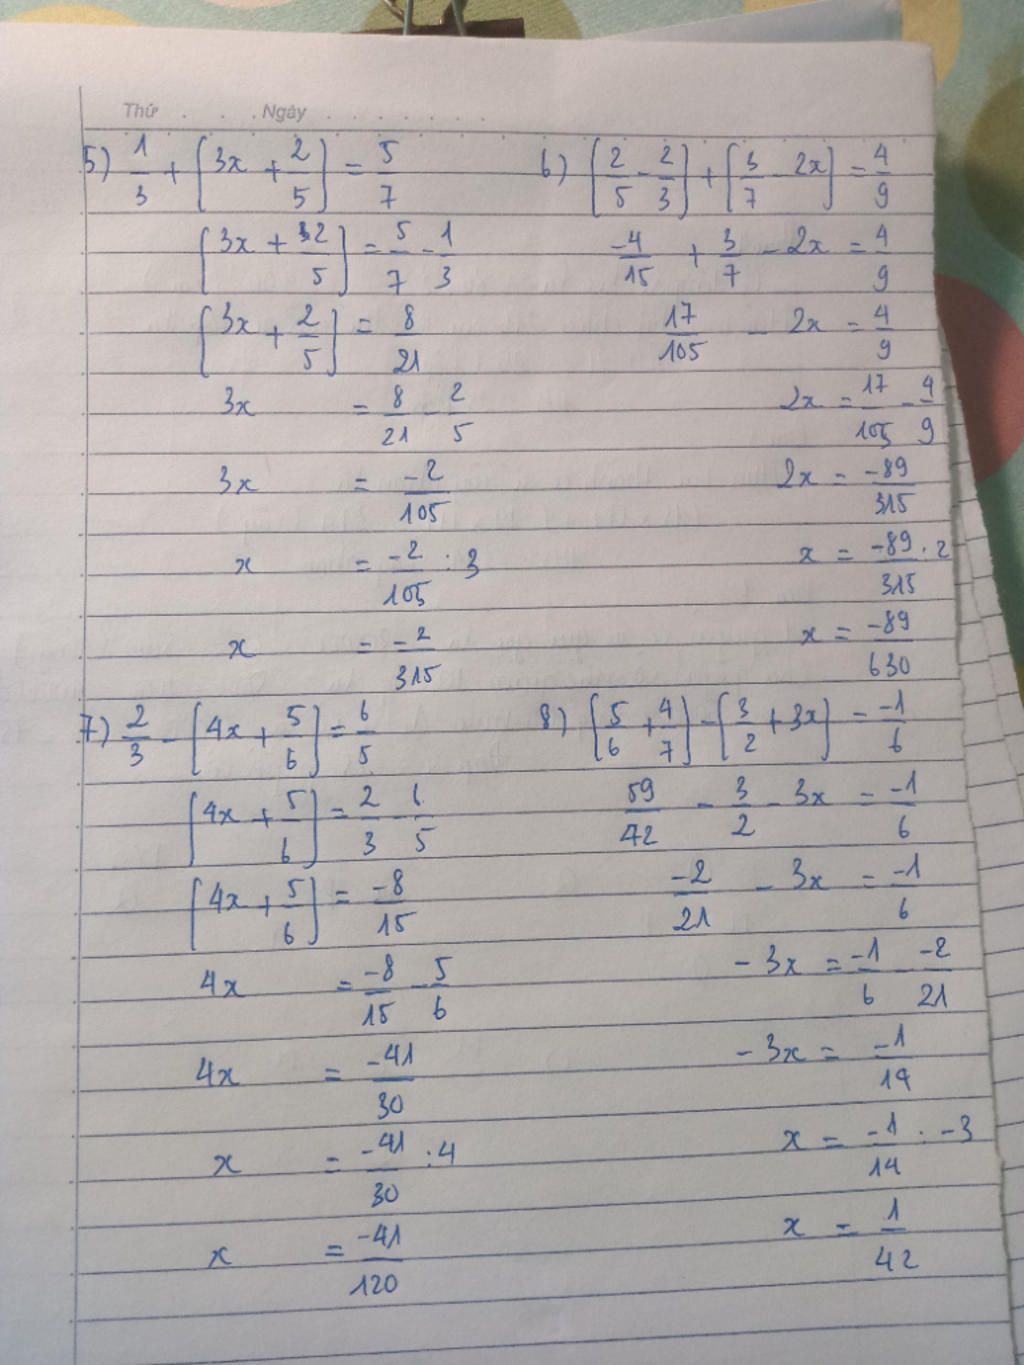 Thứ . . . Ngày . . . . . . .
5) 1/3 + [3x + 2/5] = 5/7
[3x + 2/5] = 5/7 - 1/3
[3x + 2/5] = 8/21
3x = 8/21 - 2/5
3x = -2/105
x = -2/105 : 3
x = -2/315
6) [2/5 - 2/3] + [3/7 - 2x] = 4/9
-4/15 + 3/7 - 2x = 4/9
17/105 - 2x = 4/9
2x = 17/105 - 4/9
2x = -89/315
x = -89/315 : 2
x = -89/630
7) 2/3 - [4x + 5/6] = 6/5
[4x + 5/6] = 2/3 - 6/5
[4x + 5/6] = -8/15
4x = -8/15 - 5/6
4x = -41/30
x = -41/30 : 4
x = -41/120
8) [5/6 + 4/7] - [3/2 + 3x] = -1/6
59/42 - 3/2 - 3x = -1/6
-2/21 - 3x = -1/6
- 3x = -1/6 - -2/21
- 3x = -1/14
x = -1/14 : -3
x = 1/42